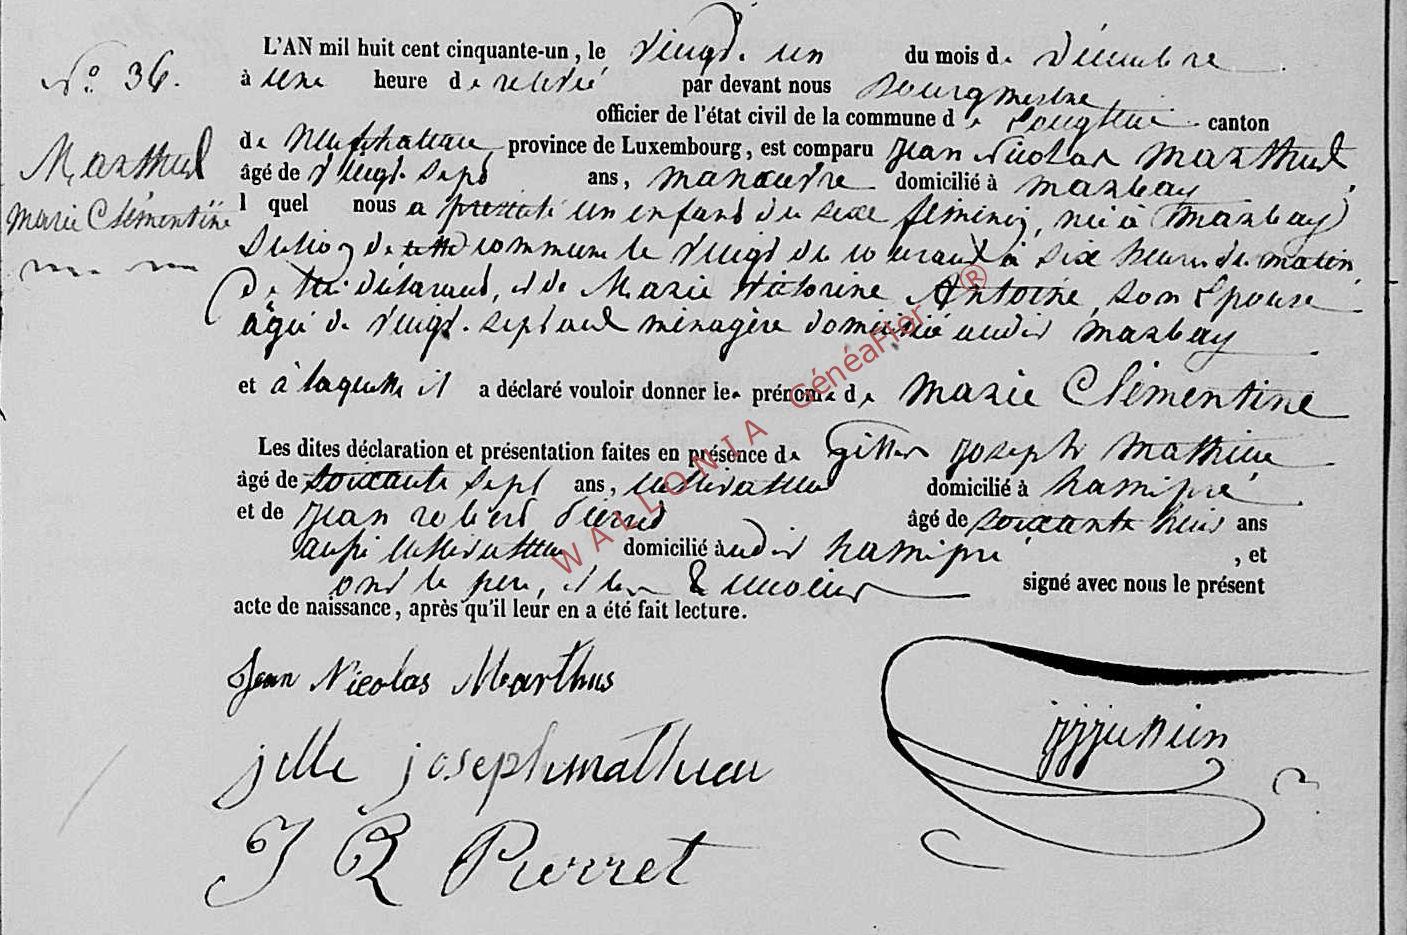 N.° 36.
Marthus
Marie Clémentine
L'AN mil huit cent cinquante-un, le vingt-un du mois de Décembre
à une heure de relevée par devant nous Bourgmestre
officier de l'état civil de la commune de Longlier canton
de Neufchateau, province de Luxembourg, est comparu Jean Nicolas Marthus
âgé de vingt-sept ans, manœuvre domicilié à Marbay
lequel nous a présenté un enfant du sexe féminin, née à Marbay
Section de cette commune le vingt du courant à six heures du matin
De lui déclarant, et de Marie Victorine Antoine, son Epouse
âgée de vingt-sept ans ménagère domiciliée audit Marbay
et à laquelle il a déclaré vouloir donner les prénoms de Marie Clémentine
Les dites déclaration et présentation faites en présence de Gilles Joseph Mathieu
âgé de soixante sept ans, cultivateur domicilié à hamipré
et de Jean robert Pierret âgé de soixante huit ans
aussi cultivateur domicilié audit hamipré, et
ont le père, et les 2 témoins signé avec nous le présent
acte de naissance, après qu'il leur en a été fait lecture.
Jean Nicolas Marthus
jille joseph mathieu
J R Pierret
WALLONIA GénéaFlor ®